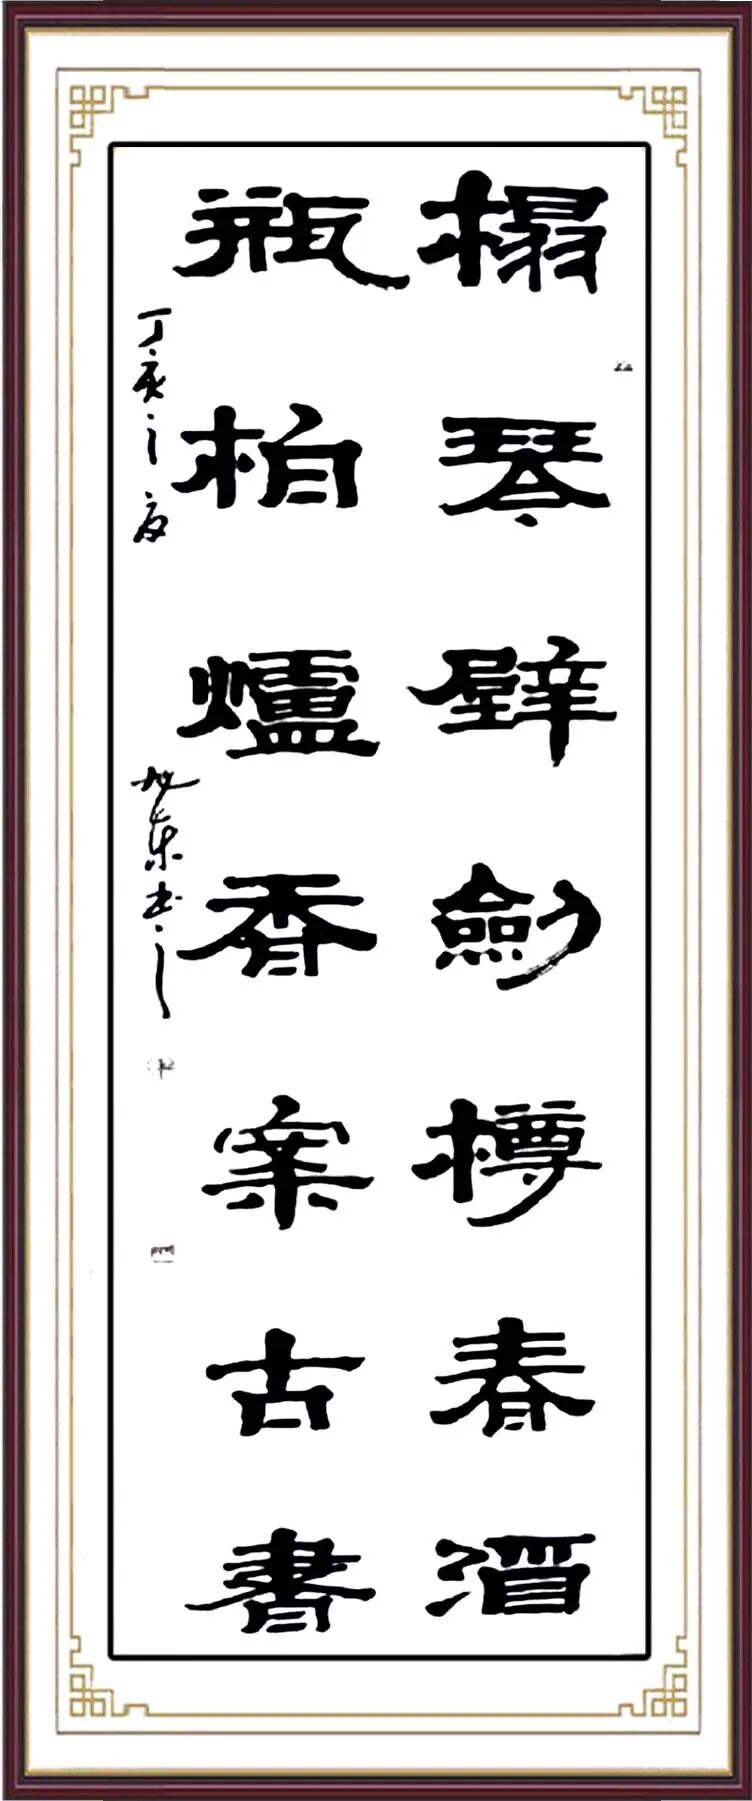 榻琴壁劍樽春酒
瓶柏爐香案古書
丁亥之夏
旭東书之